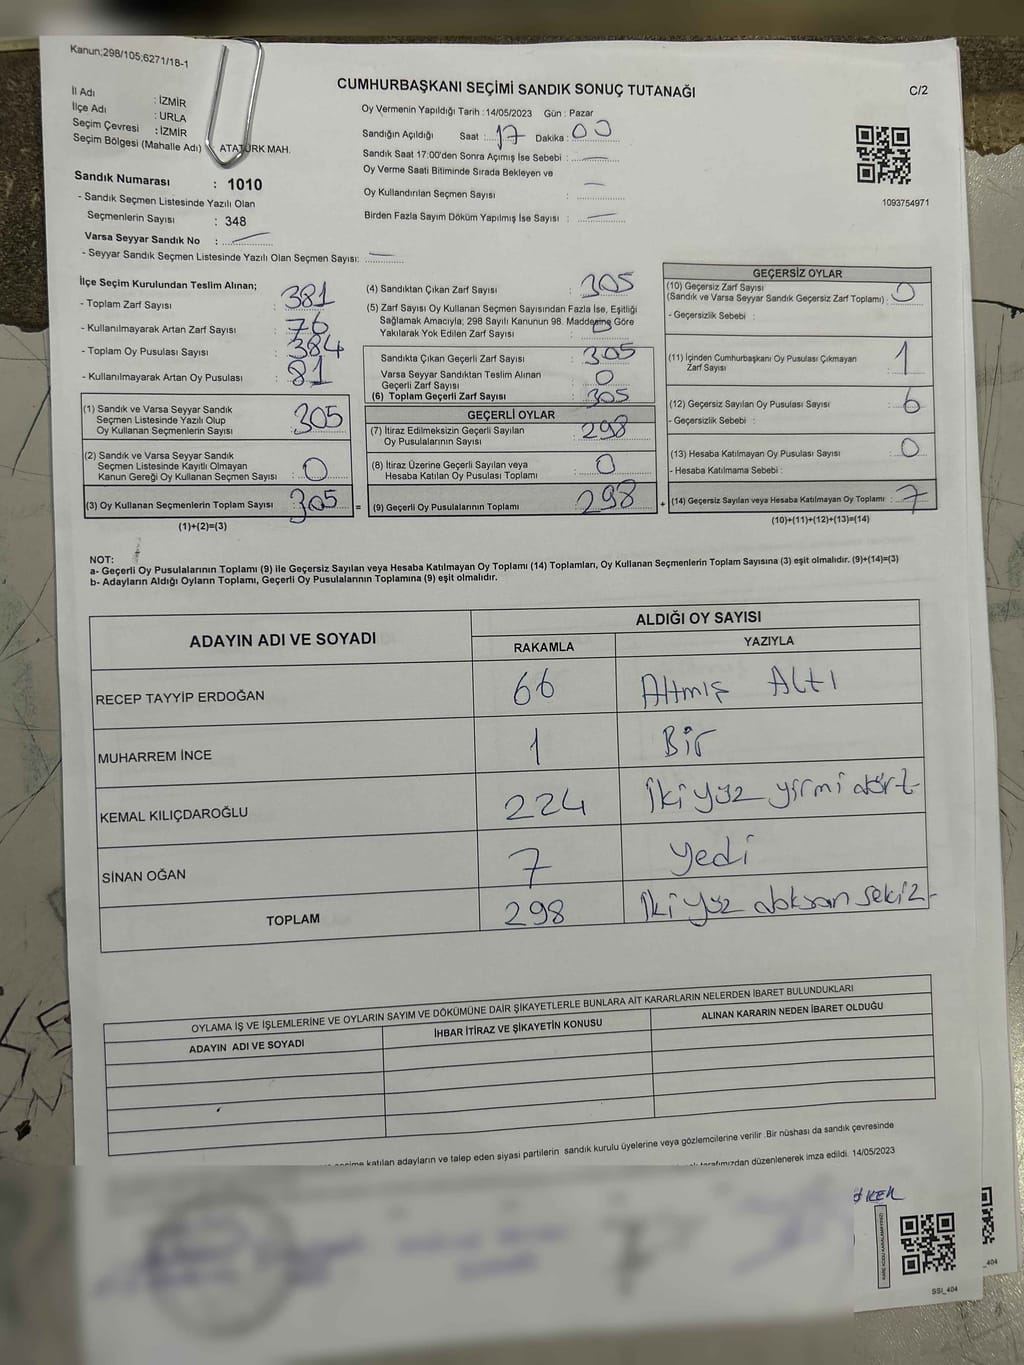 Kanun;298/105;6271/18-1
CUMHURBAŞKANI SEÇİMİ SANDIK SONUÇ TUTANAĞI
C/2
İl Adı : İZMİR
İlçe Adı : URLA
Seçim Çevresi : İZMİR
Seçim Bölgesi (Mahalle Adı) ATATÜRK MAH.
Oy Vermenin Yapıldığı Tarih :14/05/2023 Gün : Pazar
Sandığın Açıldığı Saat : 17 Dakika : 00
Sandık Saat 17:00'den Sonra Açımış İse Sebebi : —
Oy Verme Saati Bitiminde Sırada Bekleyen ve
Oy Kullandırılan Seçmen Sayısı : —
Birden Fazla Sayım Döküm Yapılmış İse Sayısı : —
1093754971
Sandık Numarası : 1010
- Sandık Seçmen Listesinde Yazılı Olan
Seçmenlerin Sayısı : 348
Varsa Seyyar Sandık No : —
- Seyyar Sandık Seçmen Listesinde Yazılı Olan Seçmen Sayısı: —
İlçe Seçim Kurulundan Teslim Alınan;
- Toplam Zarf Sayısı : 381
- Kullanılmayarak Artan Zarf Sayısı : 76
- Toplam Oy Pusulası Sayısı : 384
- Kullanılmayarak Artan Oy Pusulası : 81
(1) Sandık ve Varsa Seyyar Sandık
Seçmen Listesinde Yazılı Olup
Oy Kullanan Seçmenlerin Sayısı : 305
(2) Sandık ve Varsa Seyyar Sandık
Seçmen Listesinde Kayıtlı Olmayan
Kanun Gereği Oy Kullanan Seçmen Sayısı : 0
(3) Oy Kullanan Seçmenlerin Toplam Sayısı : 305 =
(1)+(2)=(3)
(4) Sandıktan Çıkan Zarf Sayısı : 305
(5) Zarf Sayısı Oy Kullanan Seçmen Sayısından Fazla İse, Eşitliği
Sağlamak Amacıyla; 298 Sayılı Kanunun 98. Maddesine Göre
Yakılarak Yok Edilen Zarf Sayısı :
Sandıkta Çıkan Geçerli Zarf Sayısı : 305
Varsa Seyyar Sandıktan Teslim Alınan
Geçerli Zarf Sayısı : 0
(6) Toplam Geçerli Zarf Sayısı : 305
GEÇERLİ OYLAR
(7) İtiraz Edilmeksizin Geçerli Sayılan
Oy Pusulalarının Sayısı : 298
(8) İtiraz Üzerine Geçerli Sayılan veya
Hesaba Katılan Oy Pusulası Toplamı : 0
(9) Geçerli Oy Pusulalarının Toplamı : 298 +
GEÇERSİZ OYLAR
(10) Geçersiz Zarf Sayısı
(Sandık ve Varsa Seyyar Sandık Geçersiz Zarf Toplamı) : 0
- Geçersizlik Sebebi :
(11) İçinden Cumhurbaşkanı Oy Pusulası Çıkmayan
Zarf Sayısı : 1
(12) Geçersiz Sayılan Oy Pusulası Sayısı : 6
- Geçersizlik Sebebi :
(13) Hesaba Katılmayan Oy Pusulası Sayısı : 0
- Hesaba Katılmama Sebebi :
(14) Geçersiz Sayılan veya Hesaba Katılmayan Oy Toplamı : 7
(10)+(11)+(12)+(13)=(14)
NOT:
a- Geçerli Oy Pusulalarının Toplamı (9) ile Geçersiz Sayılan veya Hesaba Katılmayan Oy Toplamı (14) Toplamları, Oy Kullanan Seçmenlerin Toplam Sayısına (3) eşit olmalıdır. (9)+(14)=(3)
b- Adayların Aldığı Oyların Toplamı, Geçerli Oy Pusulalarının Toplamına (9) eşit olmalıdır.
ADAYIN ADI VE SOYADI
ALDIĞI OY SAYISI
RAKAMLA YAZIYLA
RECEP TAYYİP ERDOĞAN 66 Altmış Altı
MUHARREM İNCE 1 Bir
KEMAL KILIÇDAROĞLU 224 iki yüz yirmi dört
SİNAN OĞAN 7 yedi
TOPLAM 298 iki yüz doksan sekiz
OYLAMA İŞ VE İŞLEMLERİNE VE OYLARIN SAYIM VE DÖKÜMÜNE DAİR ŞİKAYETLERLE BUNLARA AİT KARARLARIN NELERDEN İBARET BULUNDUKLARI
ADAYIN ADI VE SOYADI İHBAR İTİRAZ VE ŞİKAYETİN KONUSU ALINAN KARARIN NEDEN İBARET OLDUĞU
katılan adayların ve talep eden siyasi partilerin sandık kurulu üyelerine veya gözlemcilerine verilir .Bir nüshası da sandık çevresinde
tarafımızdan düzenlenerek imza edildi. 14/05/2023
SSI_404
_404